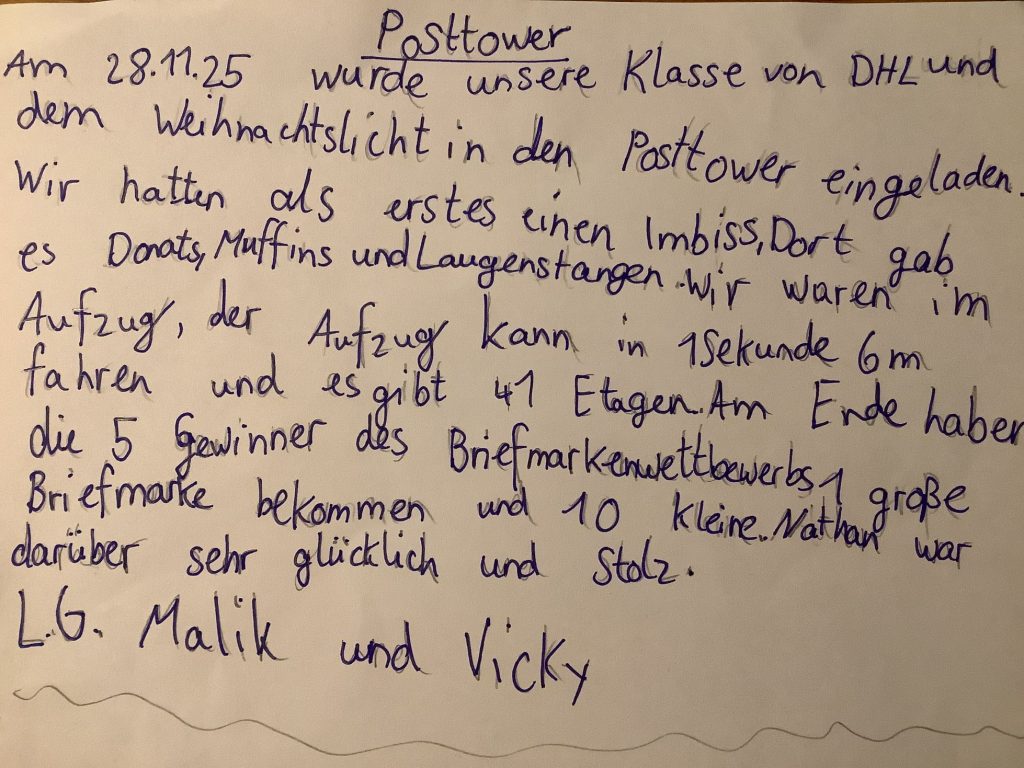 Posttower
Am 28.11.25 wurde unsere Klasse von DHL und
dem Weihnachtslicht in den Posttower eingeladen.
Wir hatten als erstes einen Imbiss, Dort gab
es Donats, Muffins und Laugenstangen. Wir waren im
Aufzug, der Aufzug kann in 1 Sekunde 6m
fahren und es gibt 41 Etagen. Am Ende haben
die 5 Gewinner des Briefmarkenwettbewerbs 1 große
Briefmarke bekommen und 10 kleine. Nathan war
darüber sehr glücklich und Stolz.
L.G. Malik und Vicky